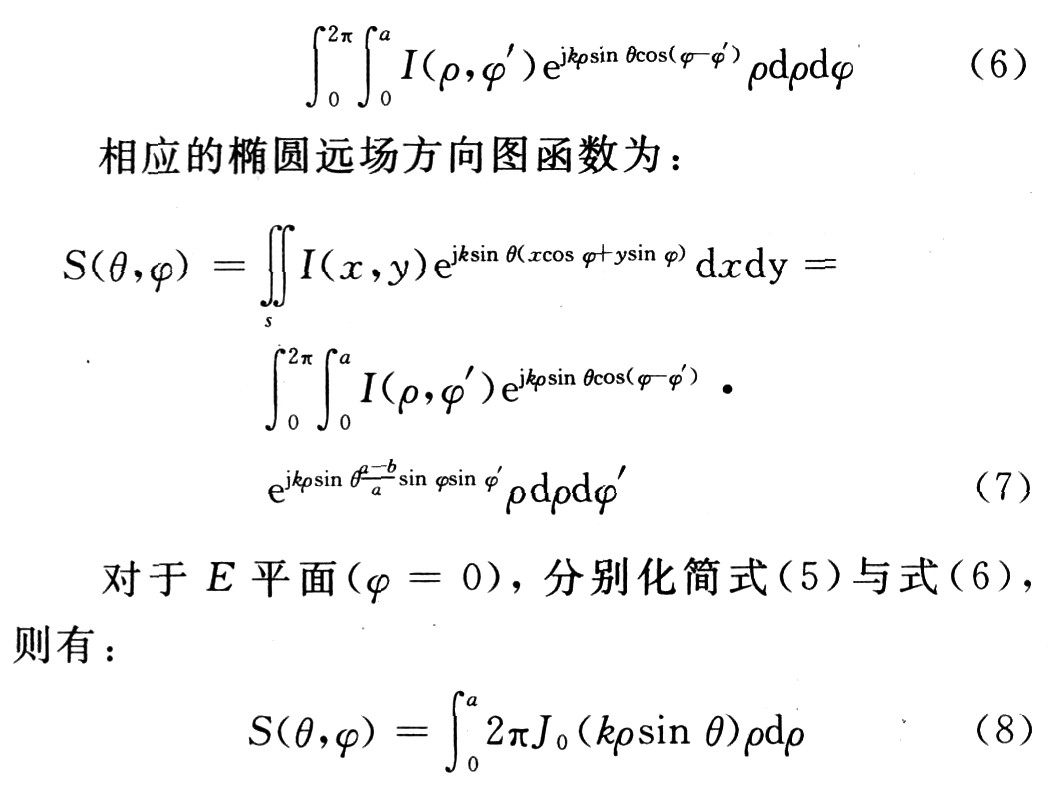 ∫₀^{2π} ∫₀^{a} I(ρ,φ′)e^{jkρsin θcos(φ−φ′)} ρdρdφ (6)
相应的椭圆远场方向图函数为：
S(θ,φ) = ∬_s I(x,y)e^{jksin θ(xcos φ+ysin φ)} dxdy =
∫₀^{2π} ∫₀^{a} I(ρ,φ′)e^{jkρsin θcos(φ−φ′)} ·
e^{jkρsin θ\frac{a−b}{a}sin φsin φ′} ρdρdφ′ (7)
对于 E 平面(φ = 0)，分别化简式(5)与式(6)，
则有：
S(θ,φ) = ∫₀^{a} 2πJ₀(kρsin θ)ρdρ (8)